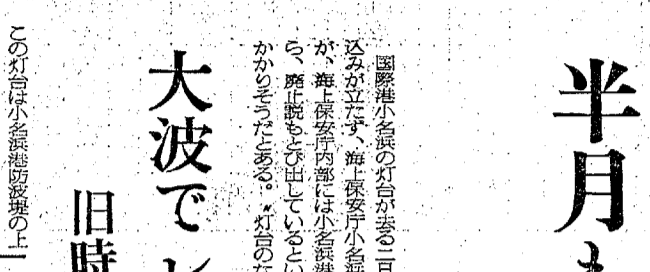 半月も
国際港小名浜の灯台が去る二日
込みが立たず、海上保安庁小名浜
が、海上保安庁内部には小名浜港
ら、廃止説もとび出しているとい
かかりそうだとある。〝灯台のな
大波で
旧時
この灯台は小名浜港防波堤の上